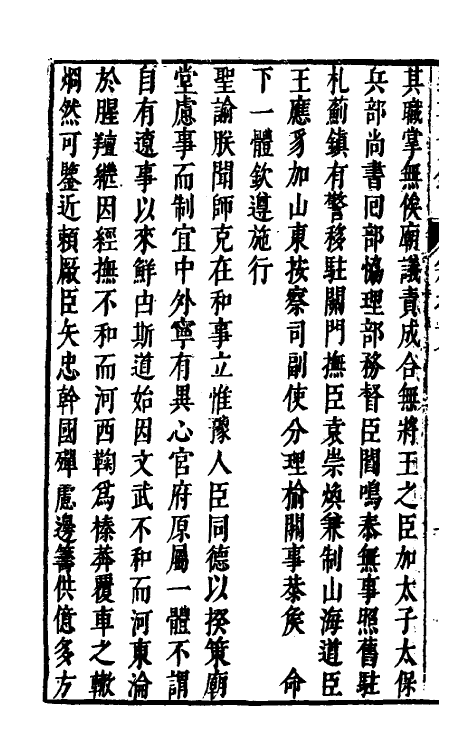 其職掌無俟廟議責成合無將王之臣加太子太保
兵部尚書囘部恊理部務督臣閻鳴泰無事照舊駐
札薊鎮有警移駐關門撫臣袁崇煥兼制山海道臣
王應豸加山東按察司副使分理榆關事恭矦　命
下一體欽遵施行
聖諭朕聞師克在和事立惟豫人臣同德以揆策廟
堂慮事而制宜中外寧有異心官府原屬一體不謂
自有遼事以來鮮由斯道始因文武不和而河東淪
於腥羶繼因經撫不和而河西鞠爲榛莽覆車之轍
烱然可鑒近頼厰臣矢忠幹國殫慮邊籌供億多方